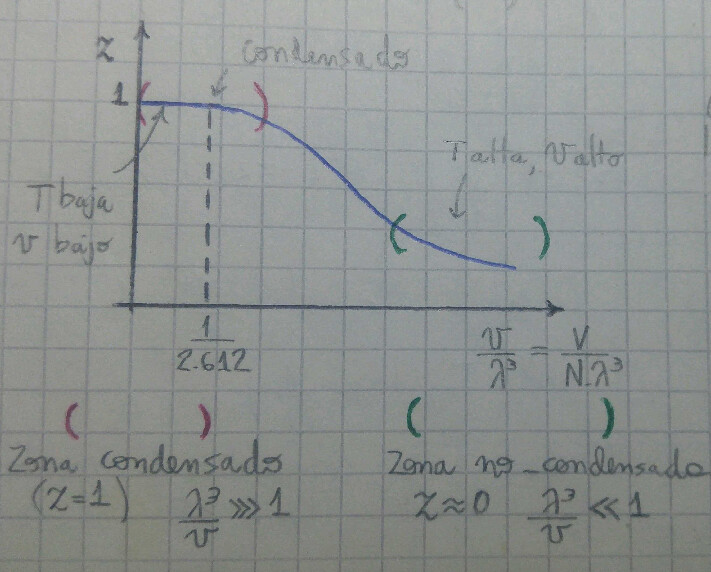 z
condensado
1
T alta, V alto
T baja
v bajo
1/2.612
v/λ³ = V/Nλ³
( ) ( )
Zona condensado
(z=1) λ³/v >>> 1
Zona no-condensado
z≈0 λ³/v << 1